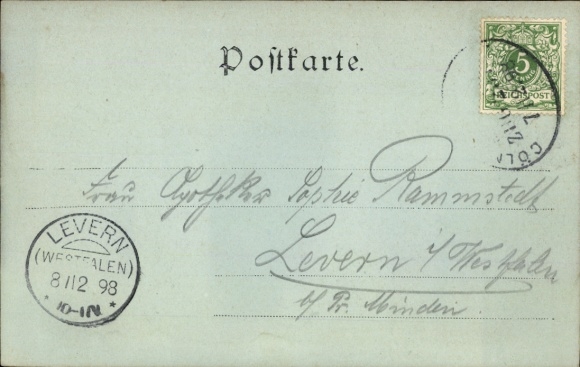 Postkarte.
5
REICHSPOST
CÖLN
Frau Apotheker Sophie Rammstedt
Levern i/Westfalen
b/ Pr. Minden
LEVERN
(WESTFALEN)
8/12 98
* 10-11V. *